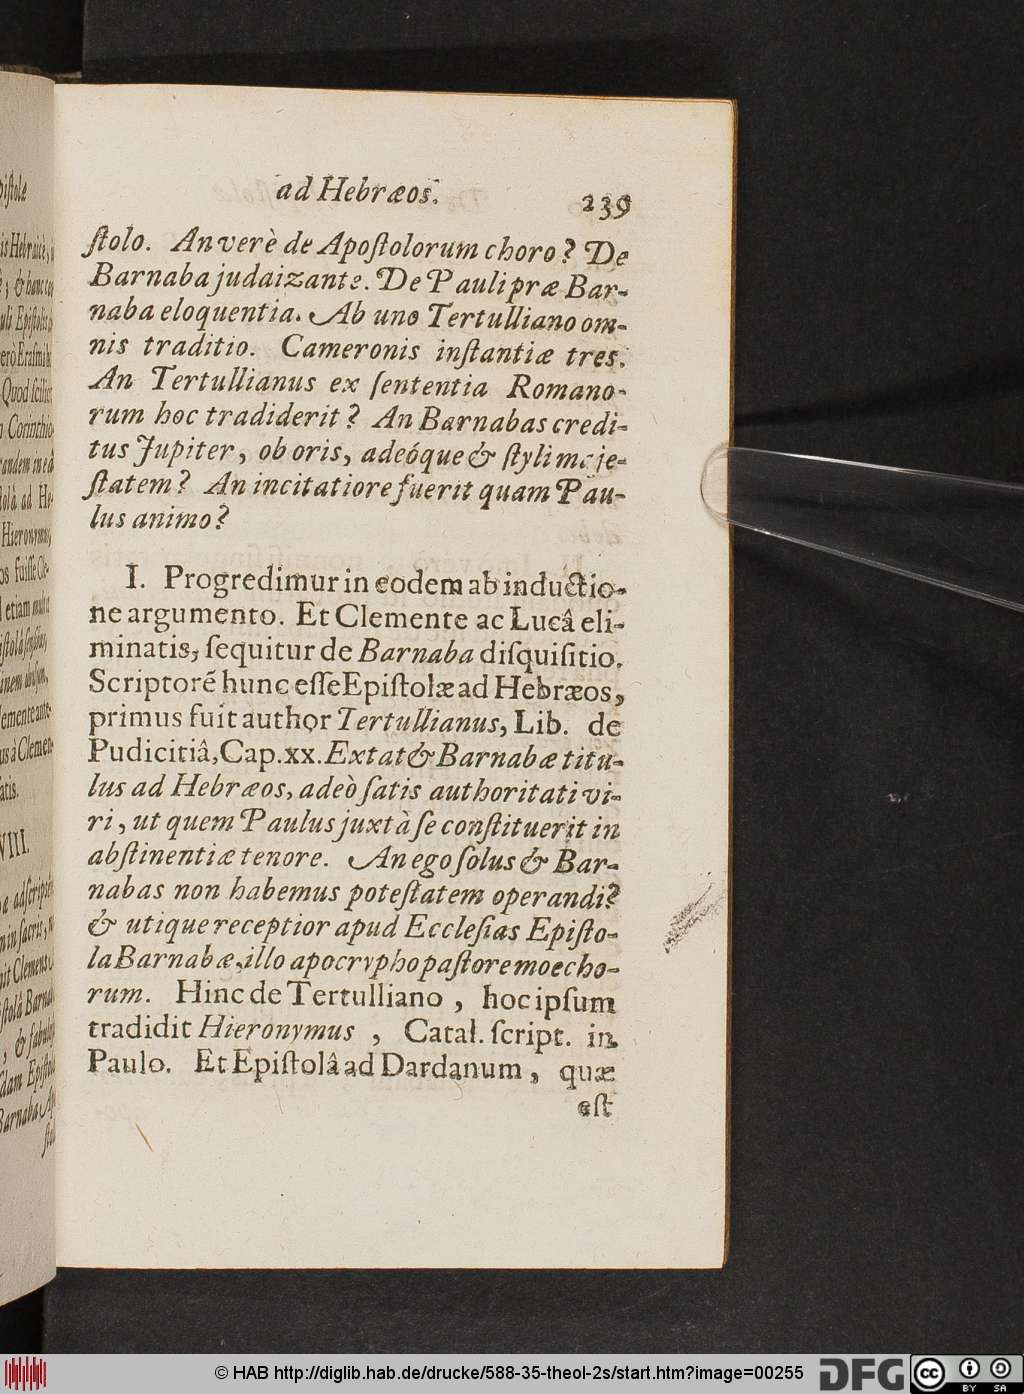 ad Hebræos. 239
ſtolo. An verè de Apoſtolorum choro? De
Barnaba judaizante. De Pauli præ Bar-
naba eloquentia. Ab uno Tertulliano om-
nis traditio. Cameronis inſtantiæ tres.
An Tertullianus ex ſententia Romano-
rum hoc tradiderit? An Barnabas credi-
tus Jupiter, ob oris, adeóque & ſtyli maje-
ſtatem? An incitatiore fuerit quam Pau-
lus animo?
I. Progredimur in eodem ab inductio-
ne argumento. Et Clemente ac Lucâ eli-
minatis, ſequitur de Barnaba diſquiſitio.
Scriptorẽ hunc eſſe Epiſtolæ ad Hebræos,
primus fuit author Tertullianus, Lib. de
Pudicitiâ, Cap. xx. Extat & Barnabæ titu-
lus ad Hebræos, adeò ſatis authoritati vi-
ri, ut quem Paulus juxtà ſe conſtituerit in
abſtinentiæ tenore. An ego ſolus & Bar-
nabas non habemus poteſtatem operandi?
& utique receptior apud Eccleſias Epiſto-
la Barnabæ, illo apocrypho paſtore moecho-
rum. Hinc de Tertulliano, hoc ipſum
tradidit Hieronymus, Catal. ſcript. in
Paulo. Et Epiſtolâ ad Dardanum, quæ
eſt
© HAB http://diglib.hab.de/drucke/588-35-theol-2s/start.htm?image=00255
DFG
cc
BY SA